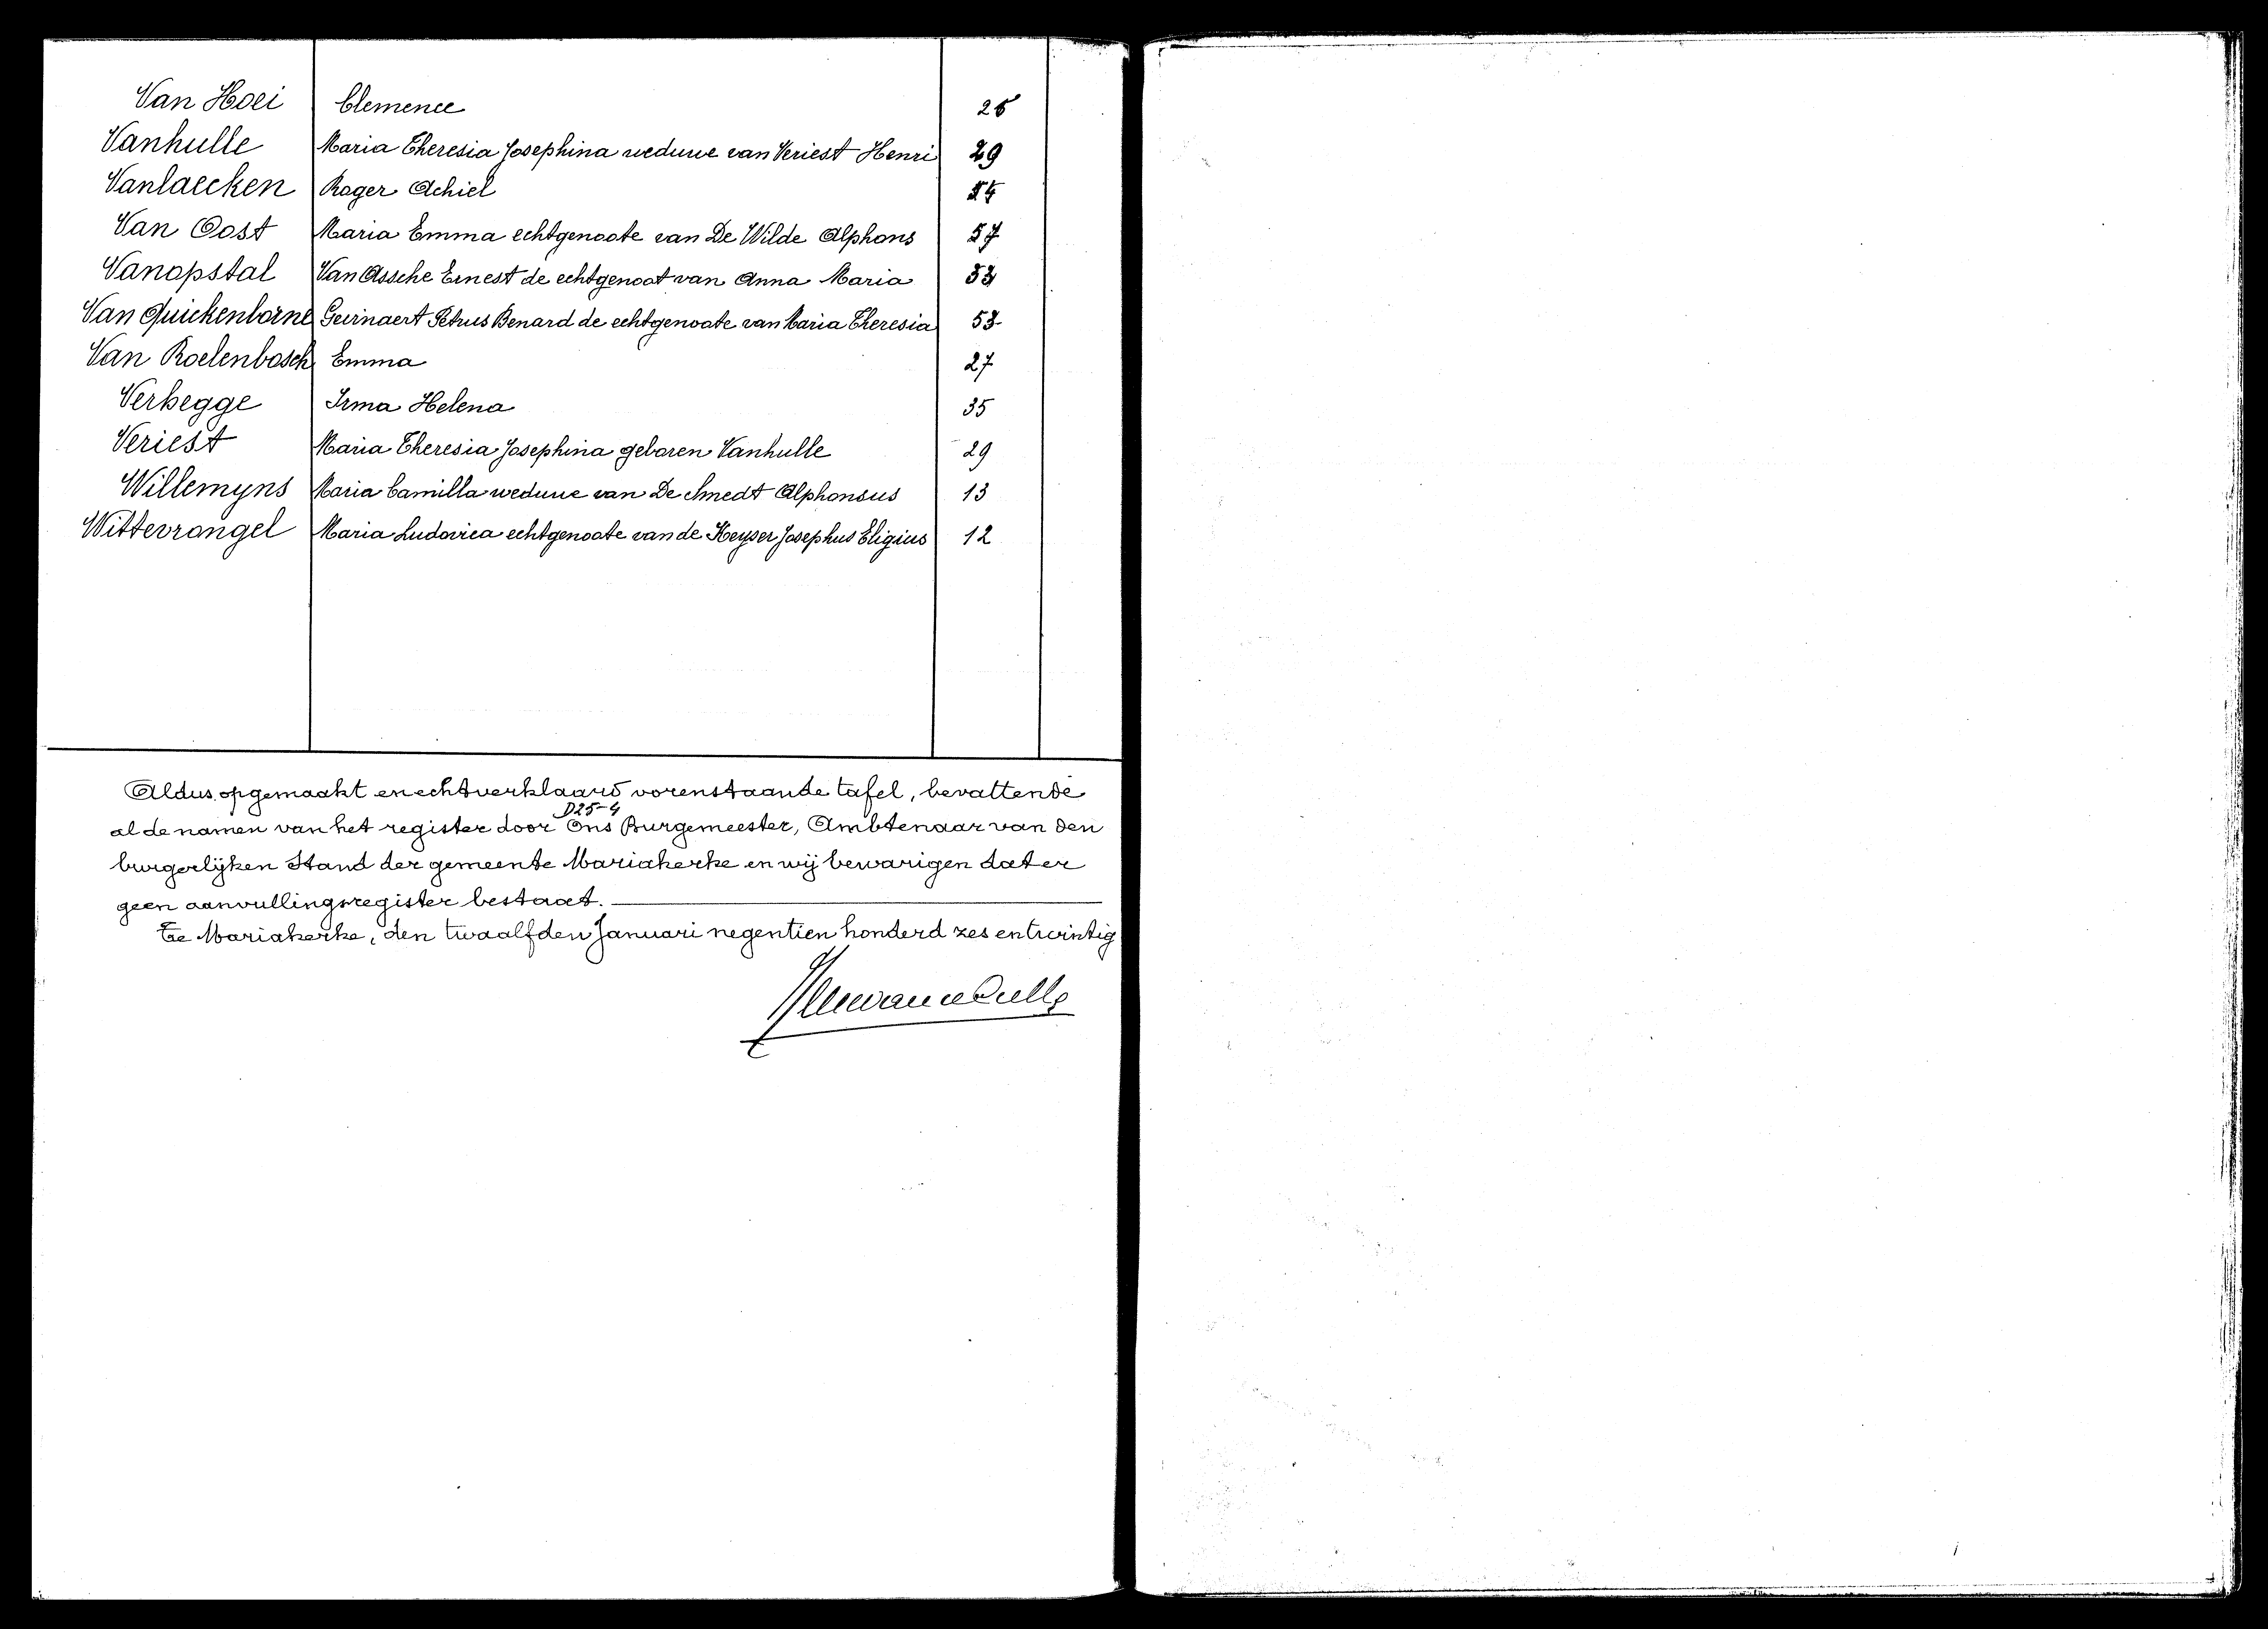 Van Hoei Clemence 26
Vanhulle Maria Theresia Josephina weduwe van Veriest Henri 29
Vanlaecken Roger Achiel
Van Oost Maria Emma echtgenoote van De Wilde Alphons 57
Vanopstal Van Assche Ernest de echtgenoot van Anna Maria
Van Quickenborne Geirnaert Petrus Benard de echtgenoote van Maria Theresia 53
Van Roelenbosch Emma 27
Verhegge Irma Helena 35
Veriest Maria Theresia Josephina geboren Vanhulle 29
Willemyns Maria Camilla weduwe van De Smedt Alphonsus 13
Wittevrongel Maria Ludovica echtgenoote van de Keyser Josephus Eligius 12
Aldus opgemaakt en echt verklaard vorenstaande tafel, bevattende
D25-4
al de namen van het register door Ons Burgemeester, Ambtenaar van den
burgerlijken Stand der gemeente Mariakerke en wij bevarigen dat er
geen aanvullingsregister bestaat.
Te Mariakerke, den twaalfden Januari negentien honderd zes en twintig